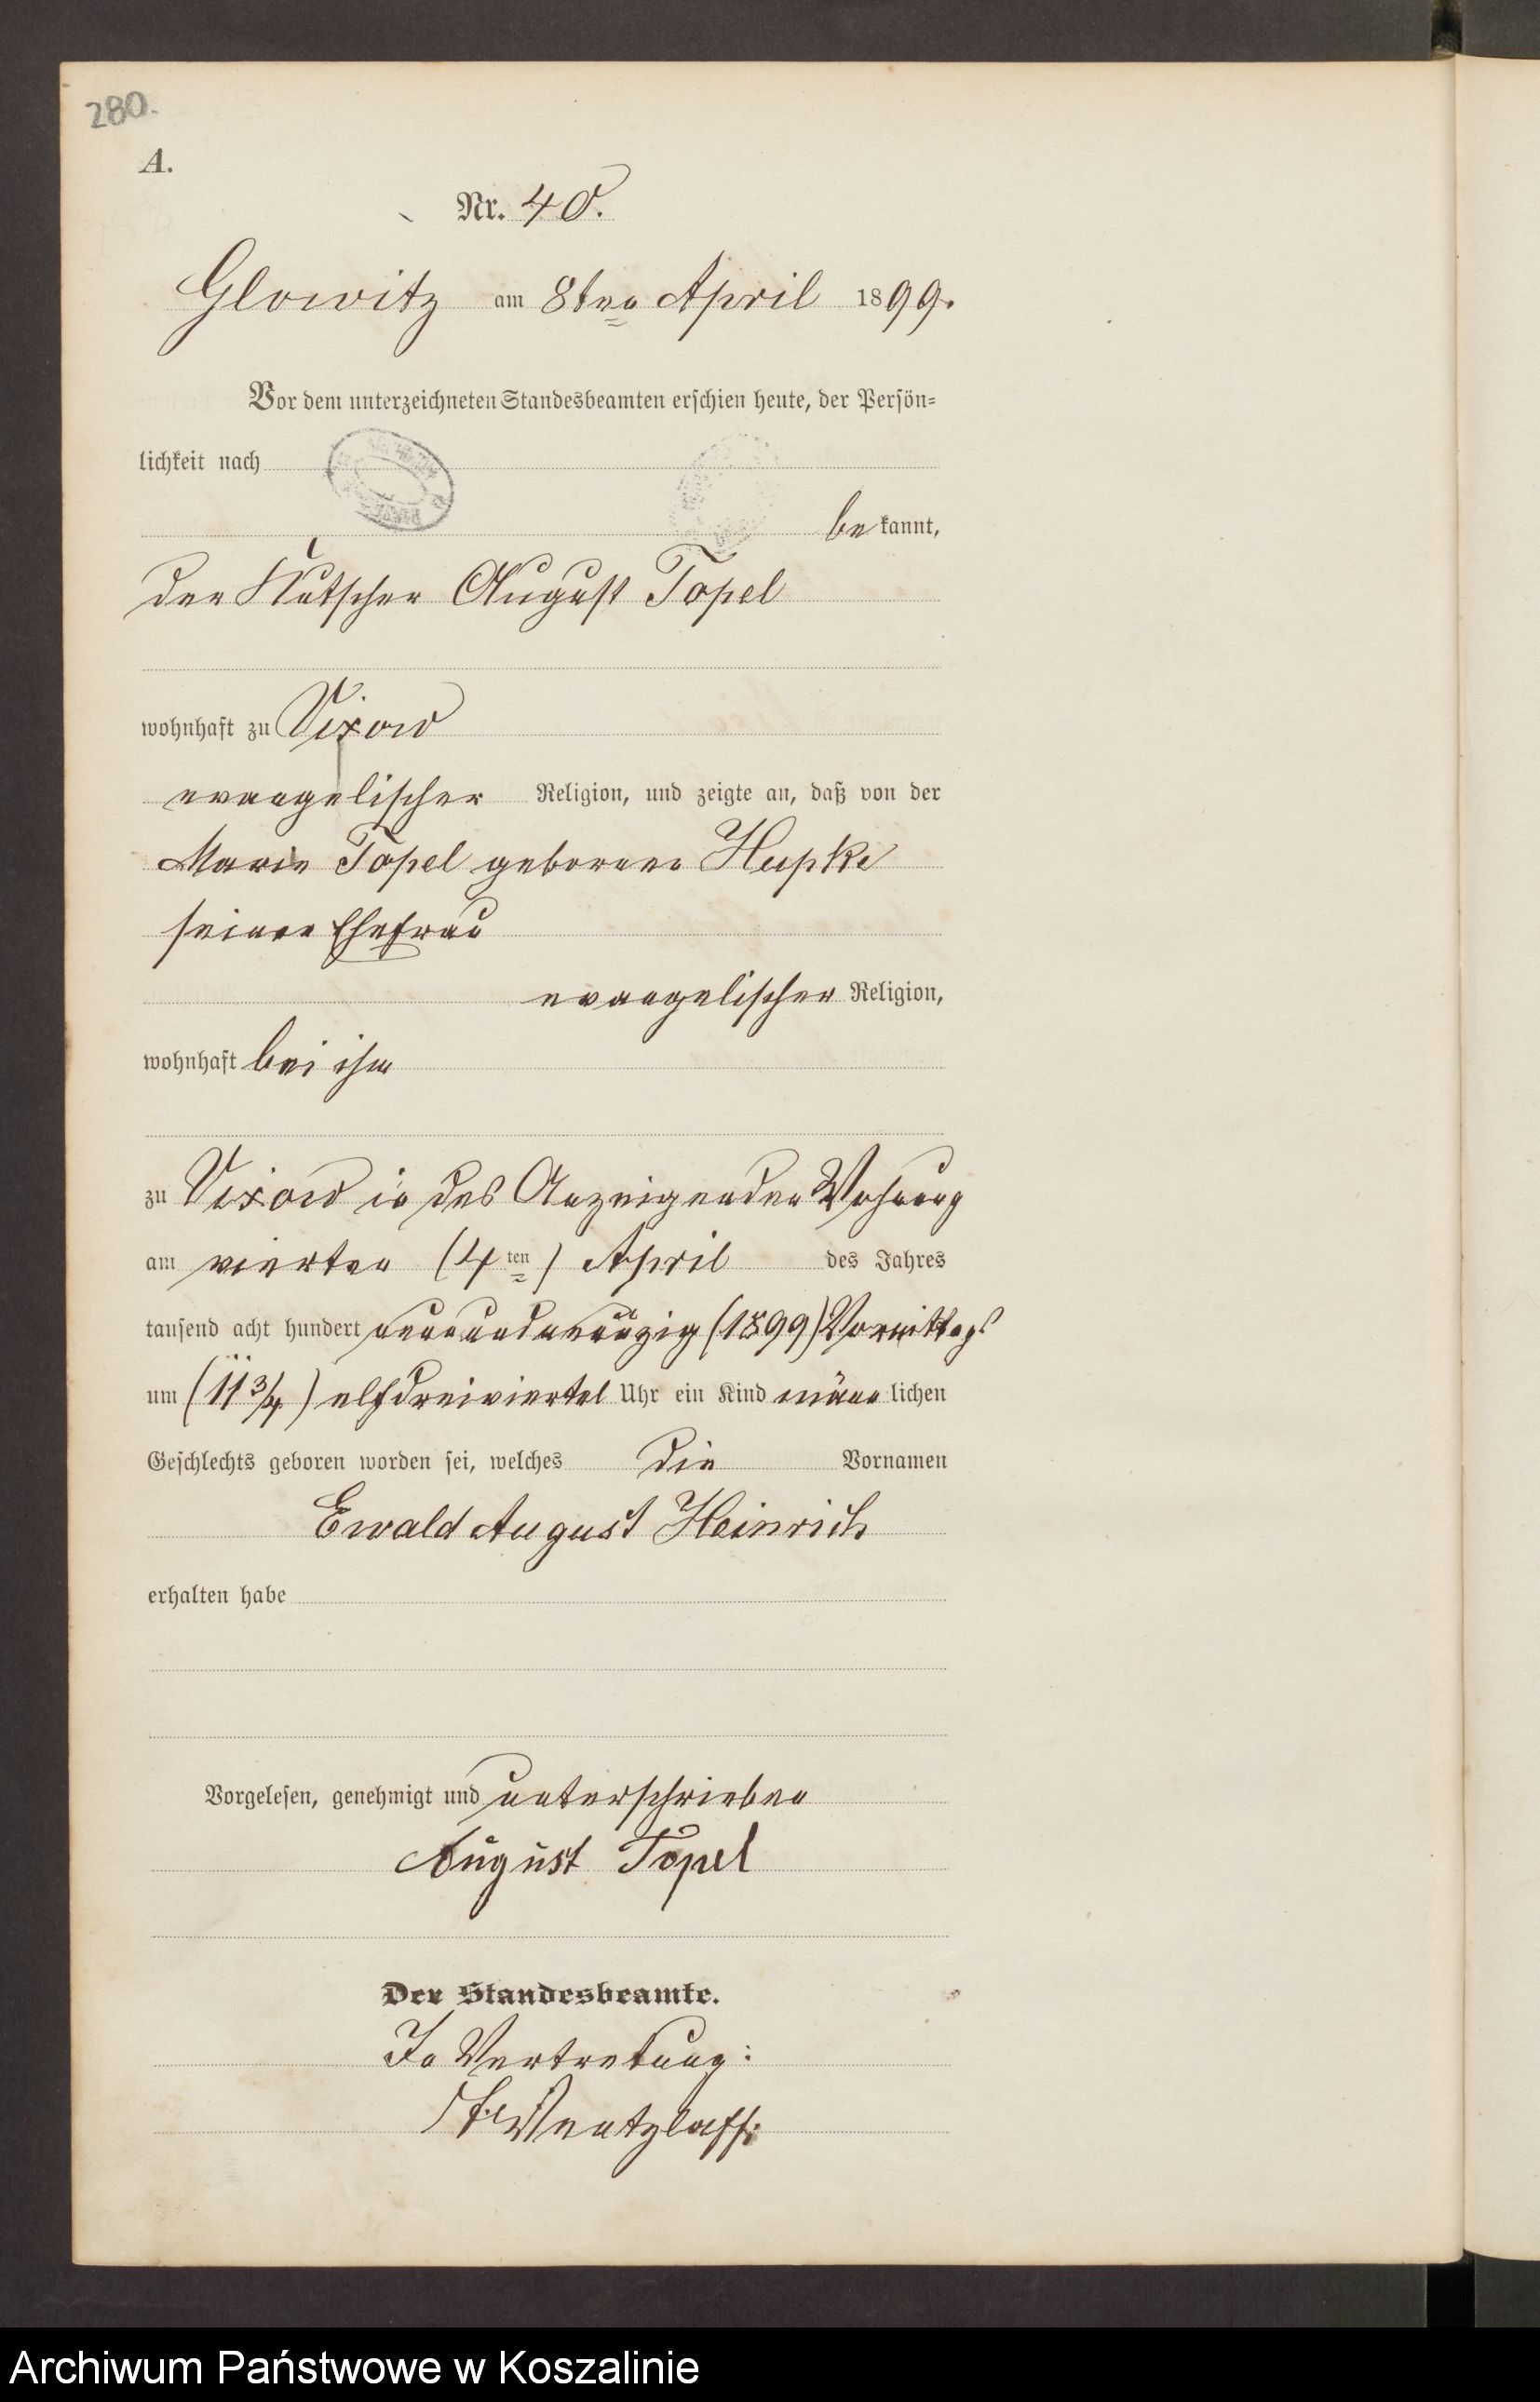 280.
A.
Nr. 40.
Glowitz am 8ten April 1899.
Vor dem unterzeichneten Standesbeamten erschien heute, der Persön-
lichkeit nach
bekannt,
der Kutscher August Topel
wohnhaft zu Vixow
evangelischer Religion, und zeigte an, daß von der
Marie Topel geborene Hupke
seiner Ehefrau
evangelischer Religion,
wohnhaft bei ihm
zu Vixow in des Anzeigenden Wohnung
am vierten (4ten) April des Jahres
tausend acht hundert neunundneunzig (1899) Vormittags
um (11 3/4) elfdreiviertel Uhr ein Kind männlichen
Geschlechts geboren worden sei, welches die Vornamen
Ewald August Heinrich
erhalten habe
Vorgelesen, genehmigt und unterschrieben
August Topel
Der Standesbeamte.
In Vertretung:
Wentzlaff.
Archiwum Państwowe w Koszalinie